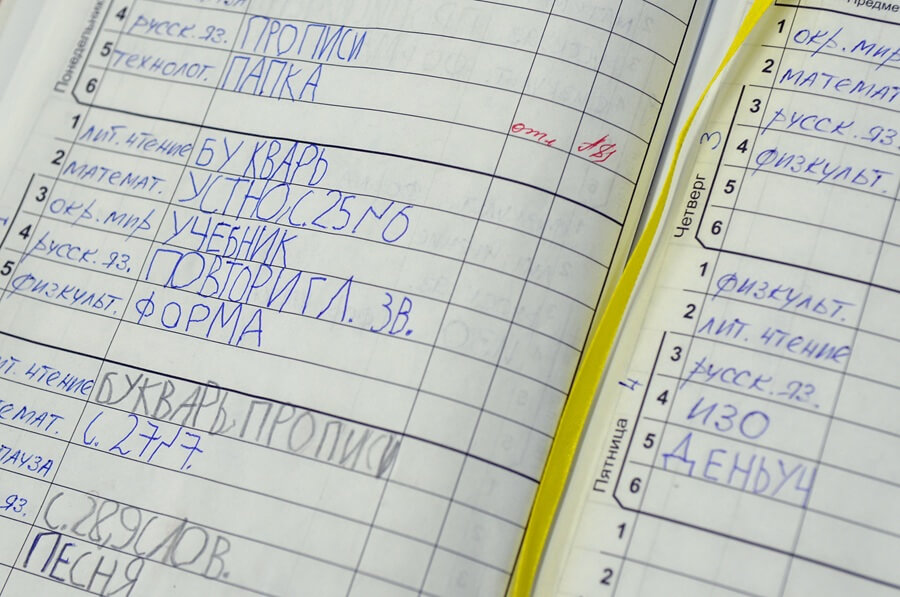 Понедельник
4 русск. яз. ПРОПИСИ
5 технолог. ПАПКА
6
отл
1 лит. чтение БУКВАРЬ
2 математ. УСТНО, С. 25 №6
3 окр. мир УЧЕБНИК
4 русск. яз. ПОВТОРИ ГЛ. ЗВ.
5 физкульт. ФОРМА
ит. чтение БУКВАРЬ, ПРОПИСИ
темат. С. 27 №7.
пауза
яз. С. 28, 9 СЛОВ.
ПЕСНЯ
Предме
Четверг 3
1 окр. мир
2 математ
3 русск. яз.
4 физкульт.
5
6
Пятница 4
1 физкульт.
2 лит. чтение
3 русск. яз.
4 ИЗО
5 ДЕНЬ УЧ
6
1
2